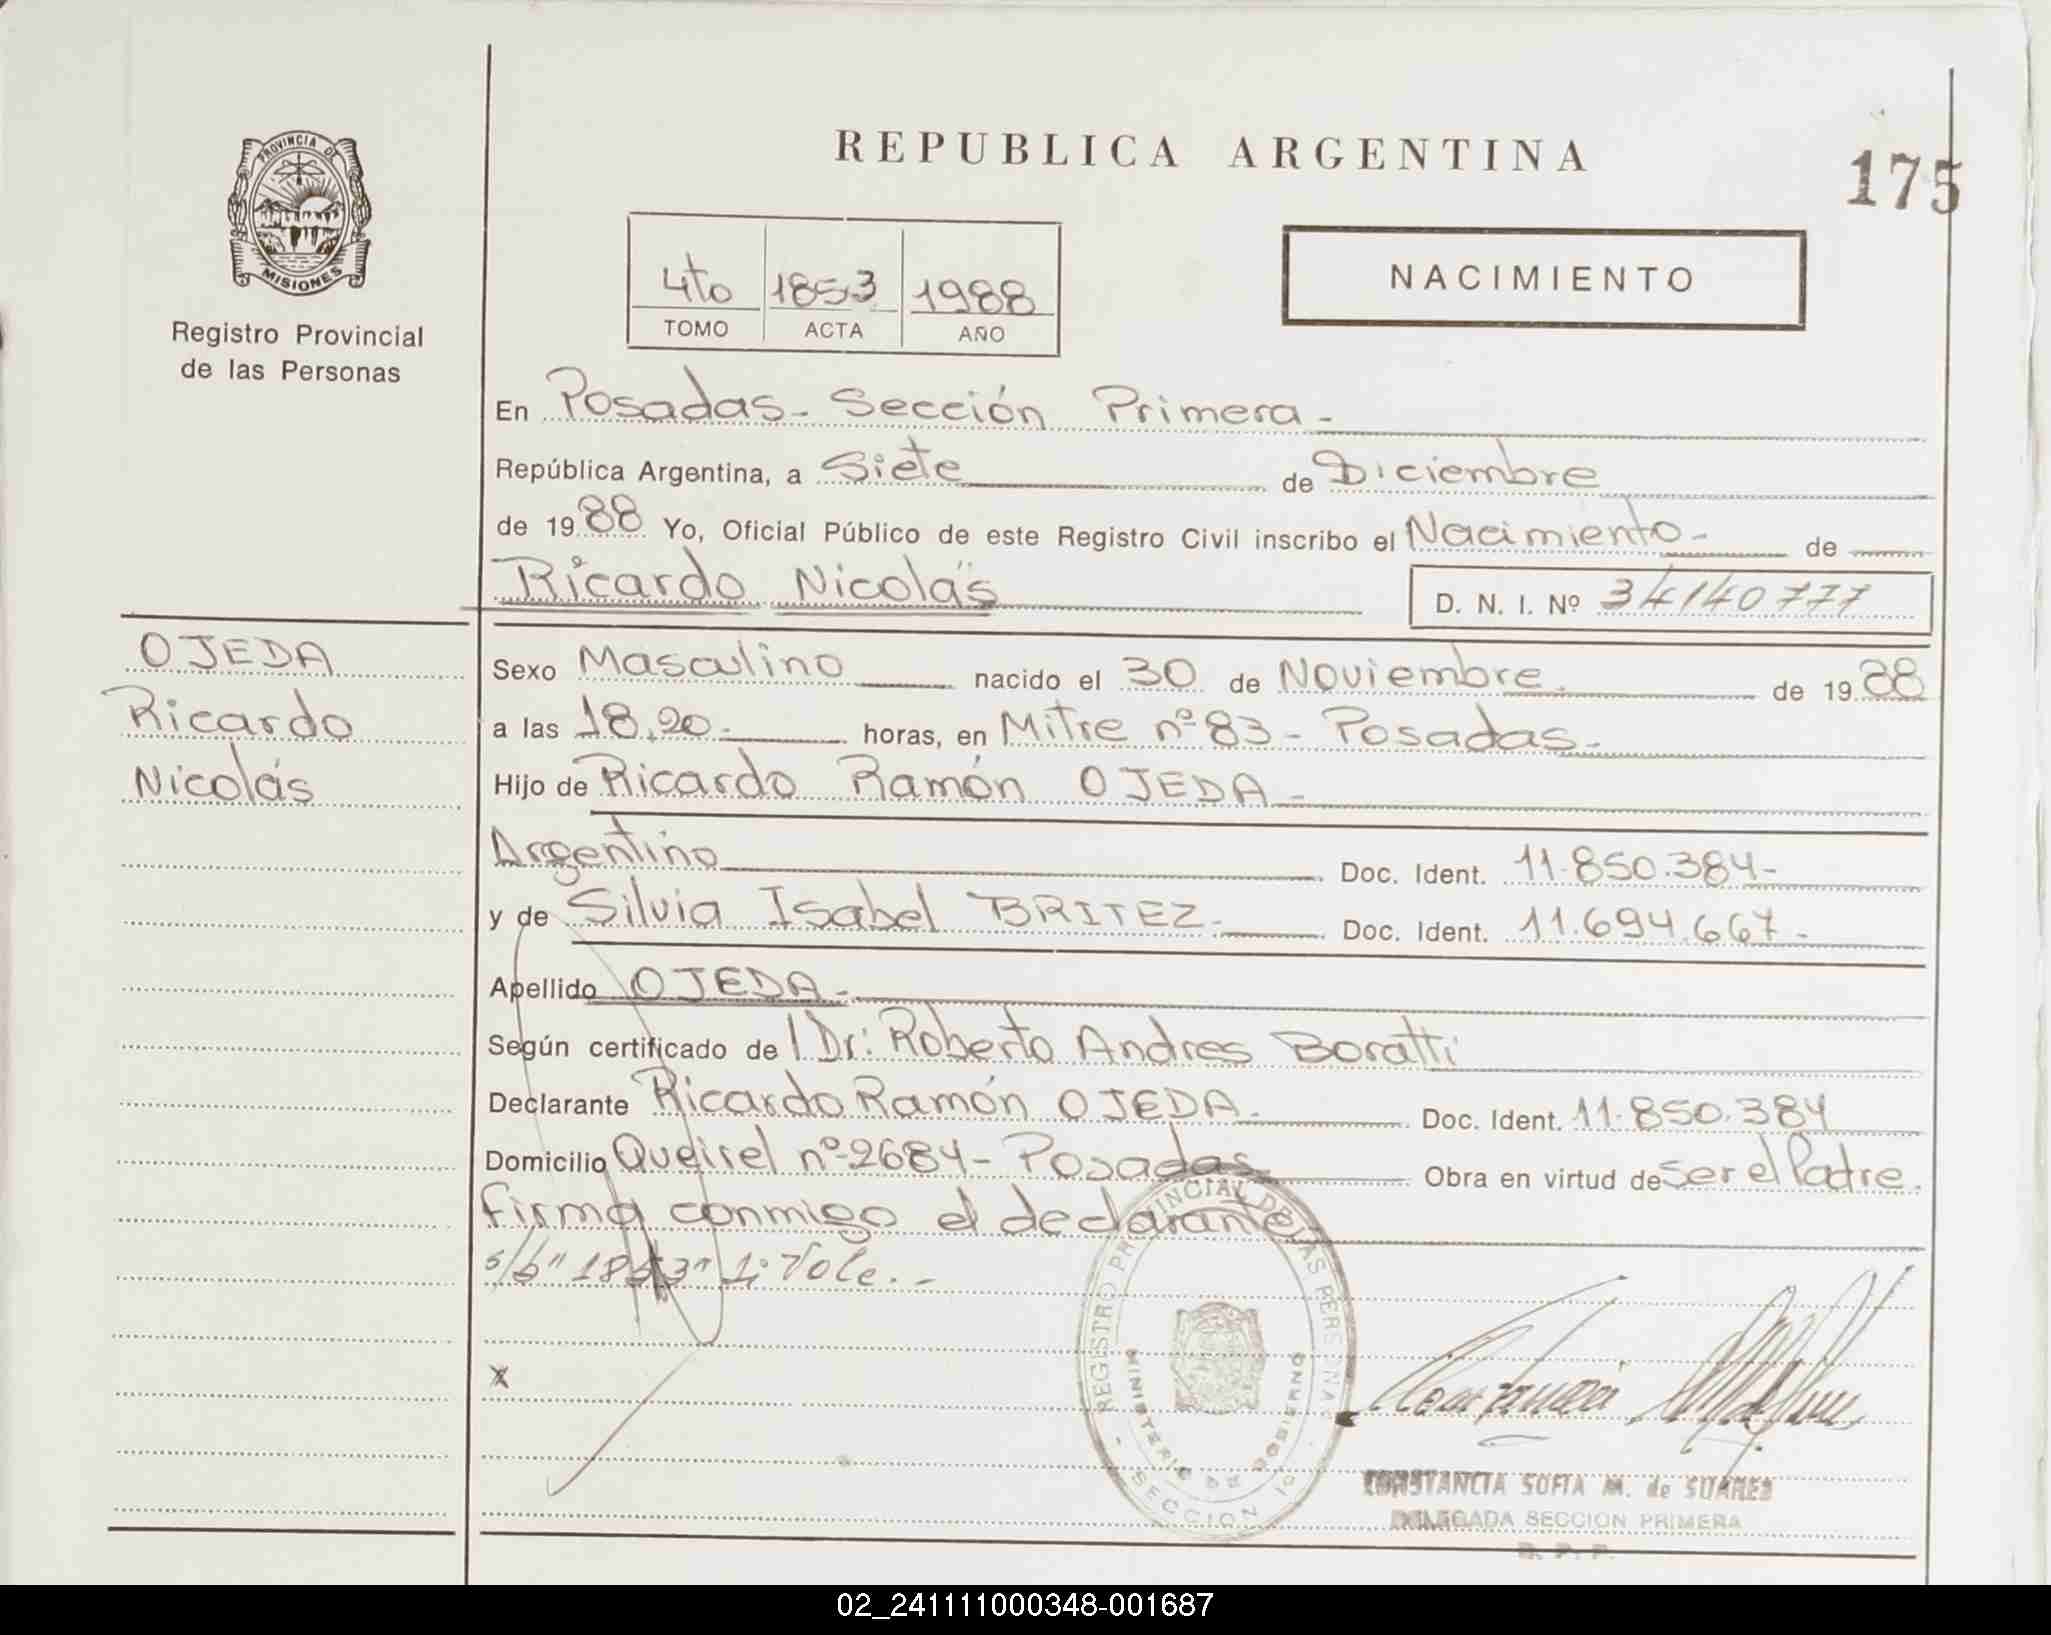 REPUBLICA ARGENTINA
175
PROVINCIA DE MISIONES
Registro Provincial
de las Personas
4to 1853 1988
TOMO ACTA AÑO
NACIMIENTO
En Posadas - Sección Primera -
República Argentina, a Siete de Diciembre
de 1988 Yo, Oficial Público de este Registro Civil inscribo el Nacimiento - de
Ricardo Nicolás D. N. I. Nº 34140777
OJEDA
Ricardo
Nicolás
Sexo Masculino nacido el 30 de Noviembre. de 1988
a las 18,20 - horas, en Mitre nº 83 - Posadas -
Hijo de Ricardo Ramón OJEDA -
Argentino Doc. Ident. 11.850.384 -
y de Silvia Isabel BRITEZ - Doc. Ident. 11.694.667 -
Apellido OJEDA -
Según certificado de l Dr: Roberto Andres Boratti
Declarante Ricardo Ramón OJEDA - Doc. Ident. 11.850.384
Domicilio Queirel nº 2684 - Posadas Obra en virtud de Ser el Padre.
Firma conmigo el declarante
s/b "1853" 1: Vale. -
x
REGISTRO PROVINCIAL DE LAS PERSONAS
MINISTERIO DE GOBIERNO
- SECCION 1º -
CONSTANCIA SOFIA M. de SUAREZ
DELEGADA SECCION PRIMERA
R. P. P.
02_241111000348-001687